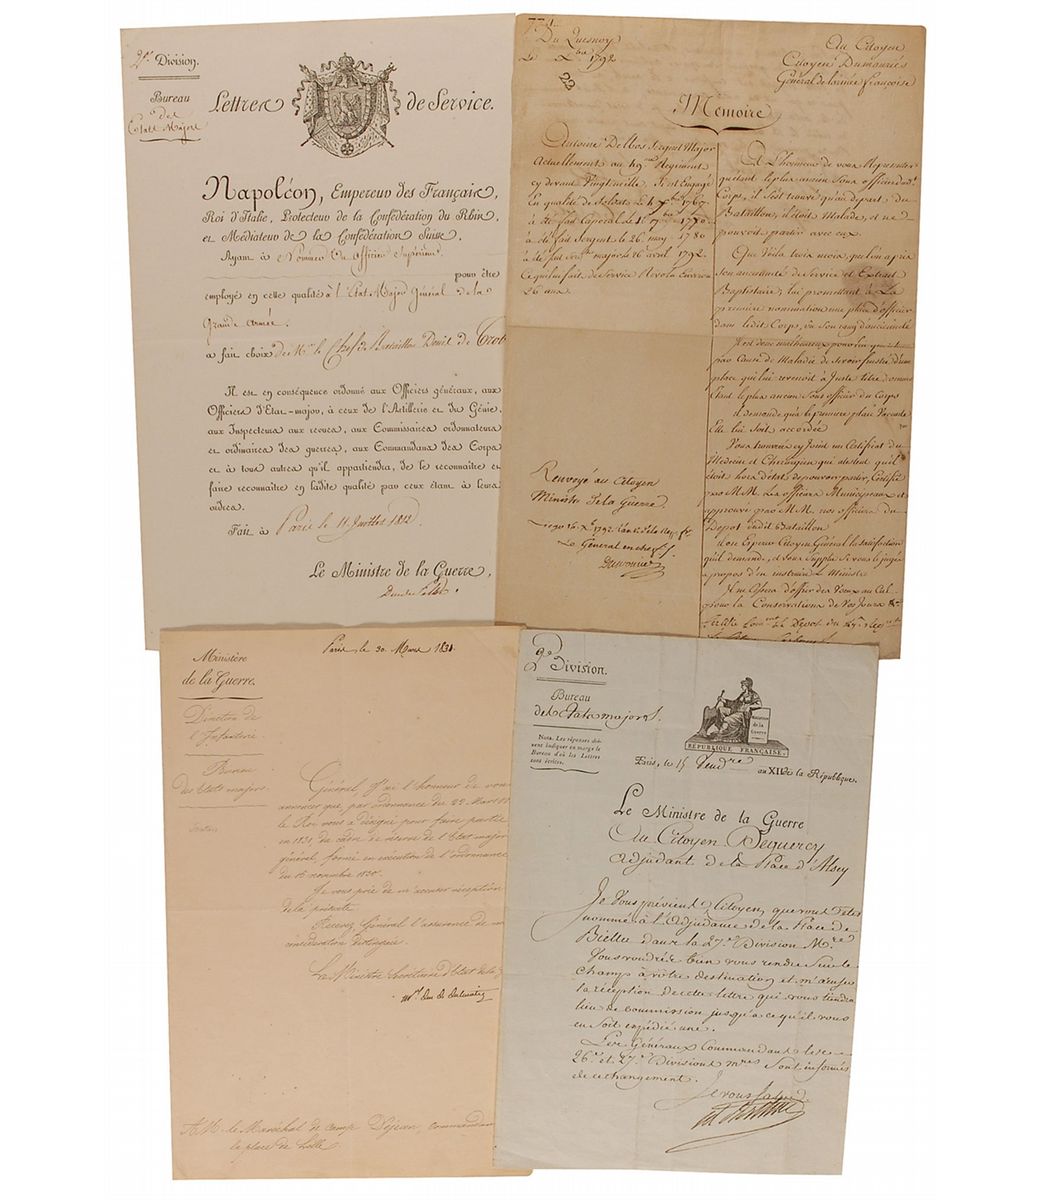 2e Division.
Bureau
de l'
Etat Major
Lettres de Service.
Napoléon, Empereur des Français,
Roi d'Italie, Protecteur de la Confédération du Rhin,
et Médiateur de la Confédération Suisse,
Ayant à Nommer Un Officier Supérieur
pour être
employé en cette qualité à l'Etat Major Général de la
Grande Armée.
a fait choix de Mr. le Chef de Bataillon
Il est en conséquence ordonné aux Officiers généraux, aux
Officiers d'Etat-major, à ceux de l'Artillerie et du Génie,
aux Inspecteurs aux revues, aux Commissaires ordonnateurs
et ordinaires des guerres, aux Commandans des Corps
et à tous autres qu'il appartiendra, de le reconnaître et
faire reconnaître en ladite qualité par ceux étant à leurs
ordres.
Fait à Paris le 11 Juillet 1812
Le Ministre de la Guerre,
Du Quesnoy
Le 1792
Au Citoyen
Citoyen Dumouriés
Général de l'armée françoise
Mémoire
Antoine Delbos Sergent Major
Actuellement au 49me Regiment
cy devant Vingtimille, S'est Engagé
En qualité de Soldat Le 4 Xbre 1767.
à été fait Caporal Le 1770.
à été fait Sergent le 26 may 1780
à été fait Sergt major le 16 avril 1792.
Ce qui lui fait de Service Revolu Environ
26 ans.
A L'honneur de vous Representer
qu'étant le plus ancien Sous officier dud.
Corps, il s'est trouvé qu'au départ du
Bataillon, il étoit Malade, et ne
pouvoit partir avec eux.
Que Voila trois mois, que l'on a pris
Son ancienneté de Service et Extrait
Baptistaire, lui promettant à La
premiere nommination une place d'officier
dans ledit Corps, vu Son rang d'ancienneté
Il est donc malheureux pour lui
par Cause de Maladie de Se voir frustré d'une
place qui lui revenoit à Juste titre comme
Etant le plus ancien Sous officier du Corps
il demande qu'à la premiere place Vaccante
Elle lui Soit accordée
Vous trouverés cy Joint un Certificat du
Medecin et Chirurgien qui atestent qu'il
étoit hors d'état de pouvoir partir, Certifié
par M.M. Les officiers Municipaux et
approuvé par M.M. nos officiers du
Depot dudit Bataillon.
il ose Esperer Citoyen Général la satisfaction
qu'il demande, et vous Supplie Si vous le jugés
à propos d'en instruire Le Ministre
Il ne Cessera d'offrir des Vœux au Ciel
pour la Conservation de Vos Jours
Renvoyé au Citoyen
Ministre de la Guerre.
Le Général en chef
Ministère
de la Guerre.
Direction de
l'Infanterie.
Bureau
des Etats majors.
Paris, le 30 Mars 1831.
Général, J'ai l'honneur de vous
annoncer que, par ordonnance du 22 Mars
le Roi vous a désigné pour faire partie
en 1831, du cadre de réserve de l'Etat major
général, formé en exécution de l'ordonnance
du 15 novembre 1830.
Je vous prie de m'accuser réception
de la présente.
Recevez Général l'assurance de ma
considération distinguée.
Le Ministre Secrétaire d'Etat de la
Mal Duc de Dalmatie
A M. le Maréchal de camp Dejean, commandant
la place de Lille
9e Division.
Bureau
des Etats majors.
Nota. Les réponses doivent
indiquer en marge le
Bureau d'où les Lettres
sont écrites.
Ministère
de la
Guerre
RÉPUBLIQUE FRANÇAISE.
Paris, le 15 Vendre an XII de la République.
Le Ministre de la Guerre
Au Citoyen Dequercy
Adjudant de la Place d'
Je Vous préviens, Citoyen, que vous êtes
nommé à l'Adjudance de la Place de
Bielle dans la 27e Division Mre
Vous voudrez bien vous rendre Sur le
champ à votre destination et m'accuser
la réception de cette lettre qui vous tiendra
lieu de commission jusqu'à ce qu'il vous
en Soit expédié une.
Les Généraux Commandant les
26e et 27e Divisions mres Sont informés
de ce changement.
Je vous Salue.